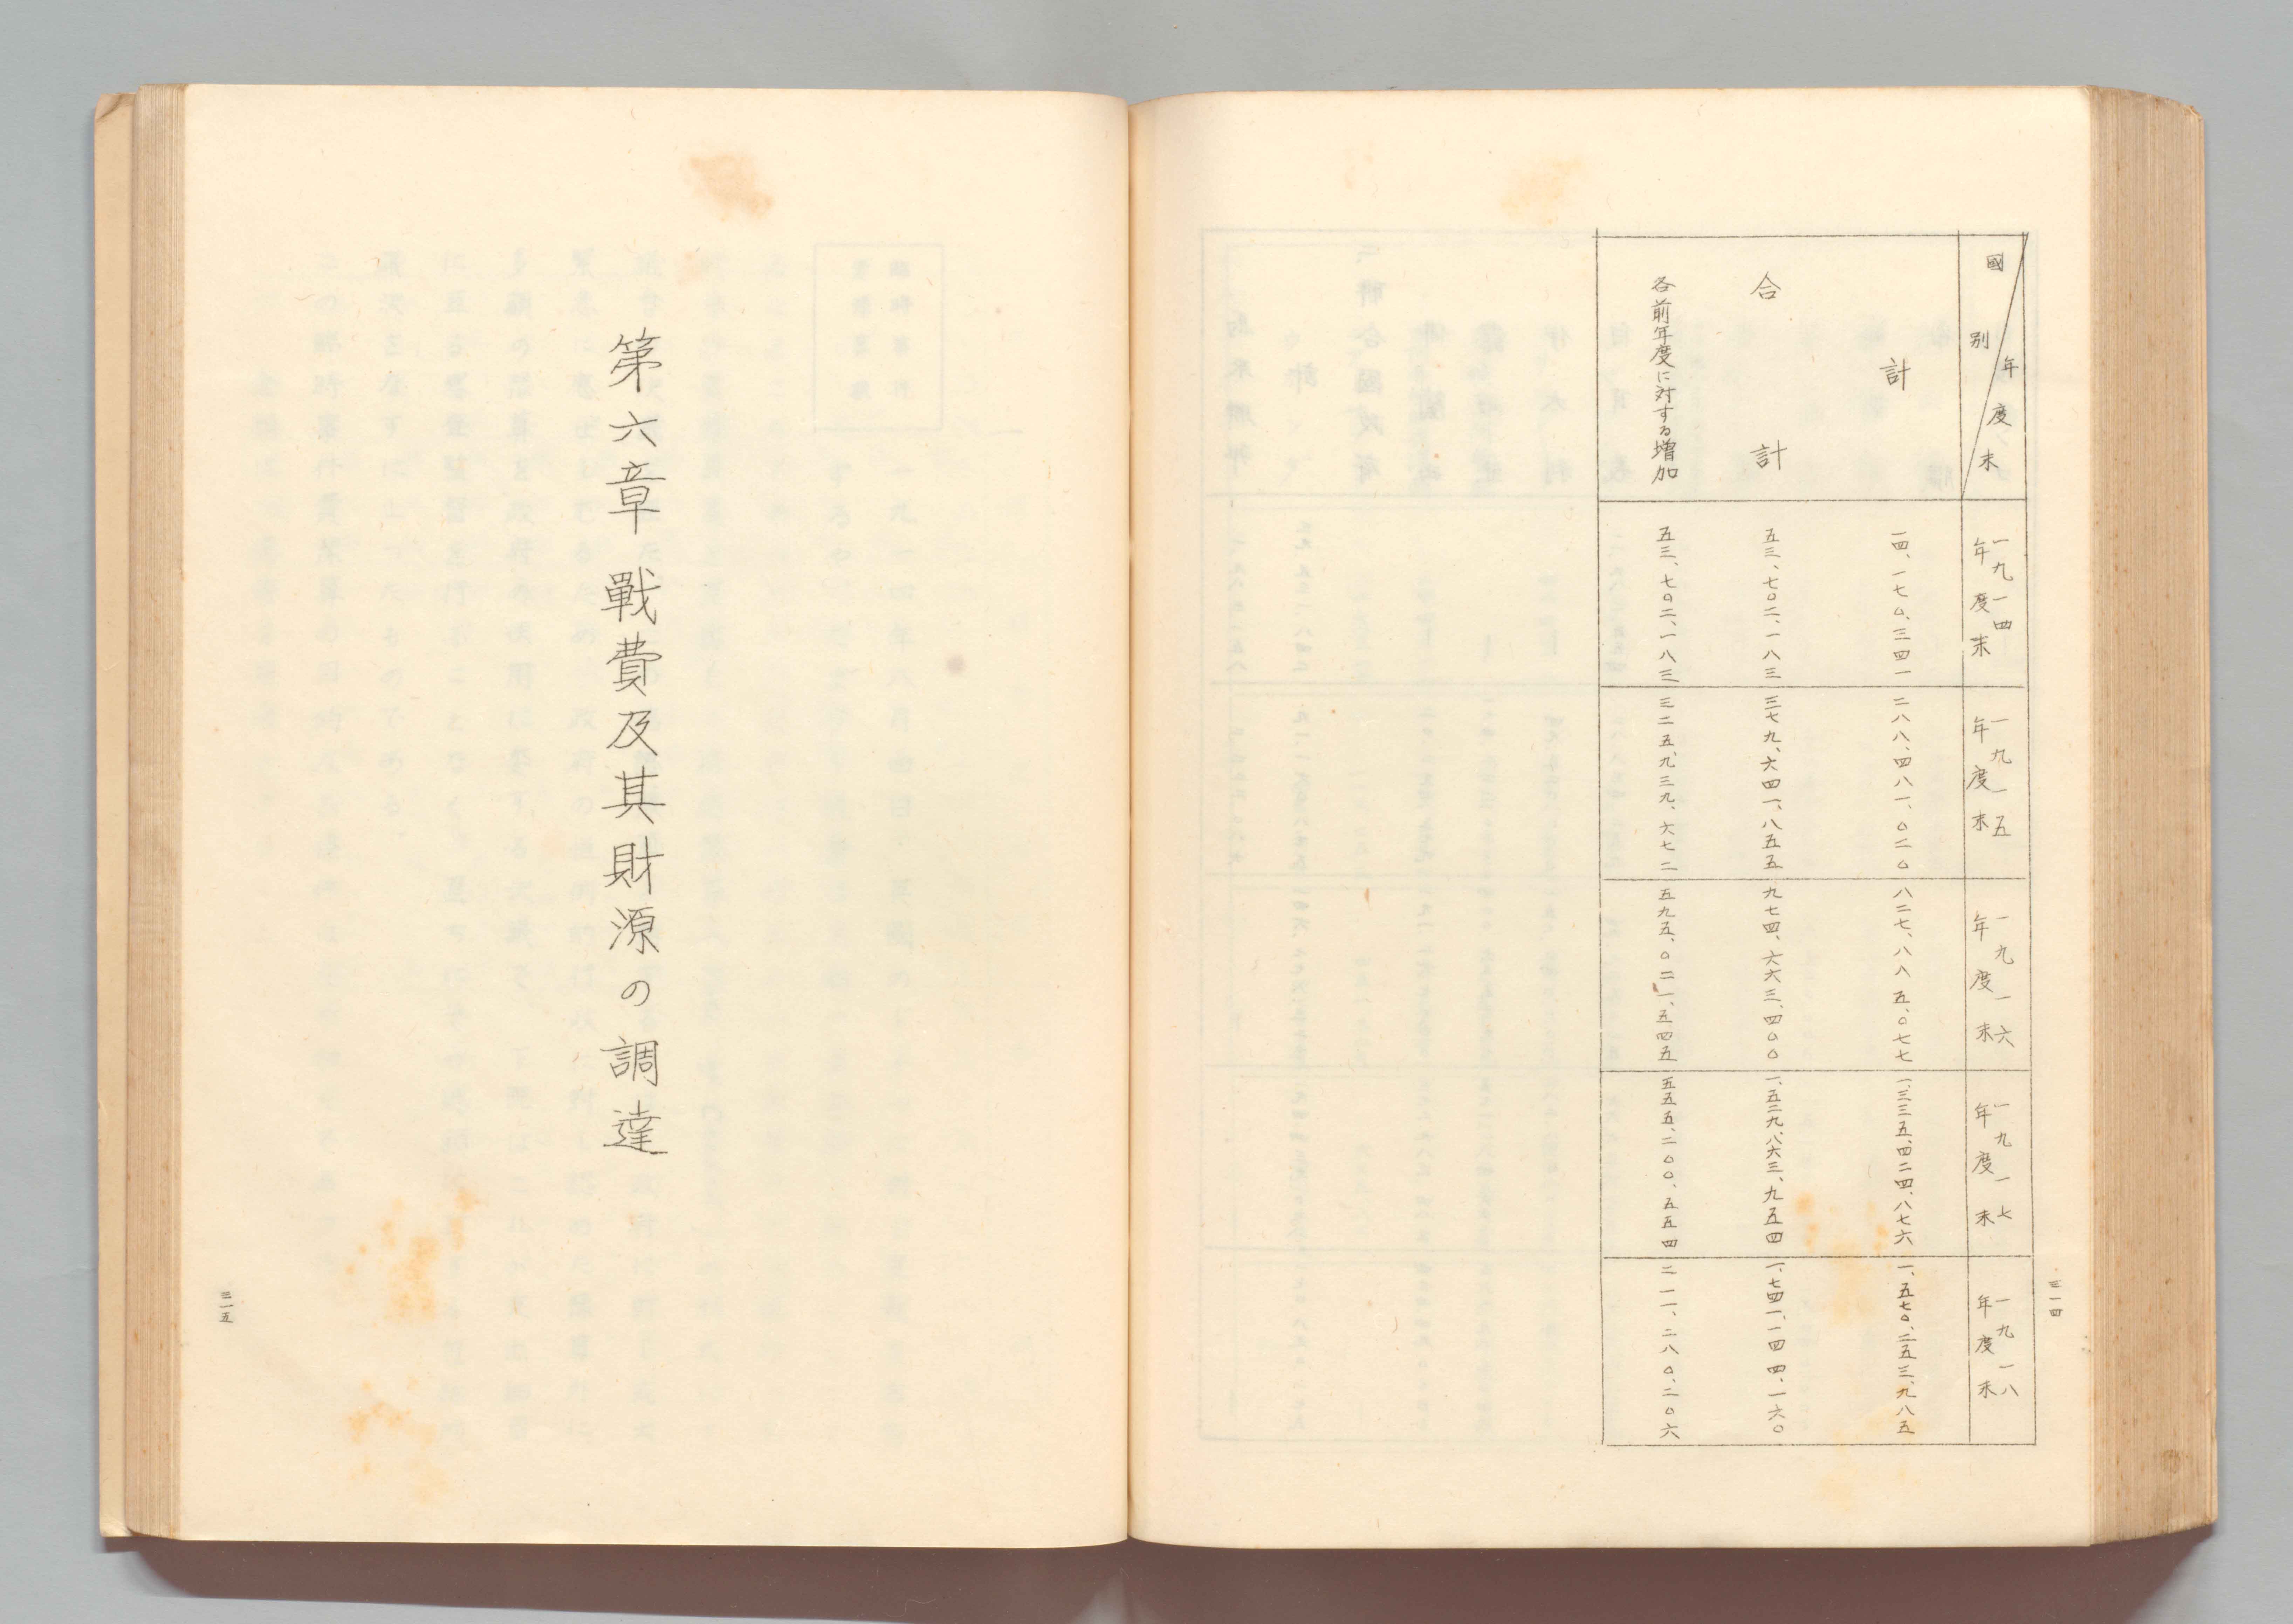 三一四
國別 年度末
一九一四年度末
一九一五年度末
一九一六年度末
一九一七年度末
一九一八年度末
計
一四、一七〇、三四一
二八八、四八一、〇二〇
八二七、八八五、〇七七
一、三三五、四二四、八七六
一、五七〇、二五三、九八五
合計
五三、七〇二、一八三
三七九、六四一、八五五
九七四、六六三、四〇〇
一、五二九、八六三、九五四
一、七四一、一四四、一六〇
各前年度に対する増加
五三、七〇二、一八三
三二五、九三九、六七二
五九五、〇二一、五四五
五五五、二〇〇、五五四
二一一、二八〇、二〇六
第六章 戰費及其財源の調達
三一五